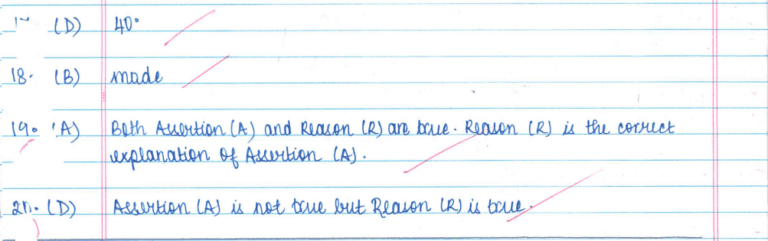 (D) 40°
18. (B) made
19. (A) Both Assertion (A) and Reason (R) are true. Reason (R) is the correct
explanation of Assertion (A).
20. (D) Assertion (A) is not true but Reason (R) is true.